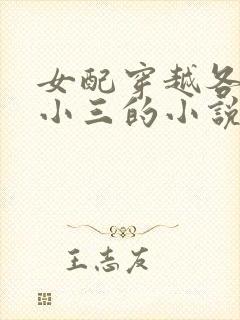 女配穿越各
小三的小说
王志友